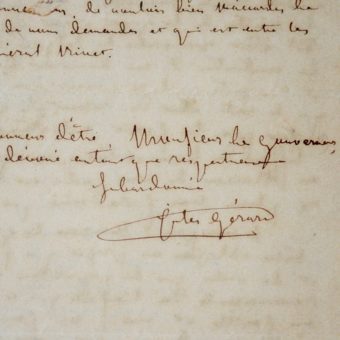 de vouloir bien m'accorder la
de nous demandés et qui est entre les
Général Trinet.
honneur d'être, Monsieur le Gouverneur,
dévoué autant que respectueux
Subordonné
Jules Gérard